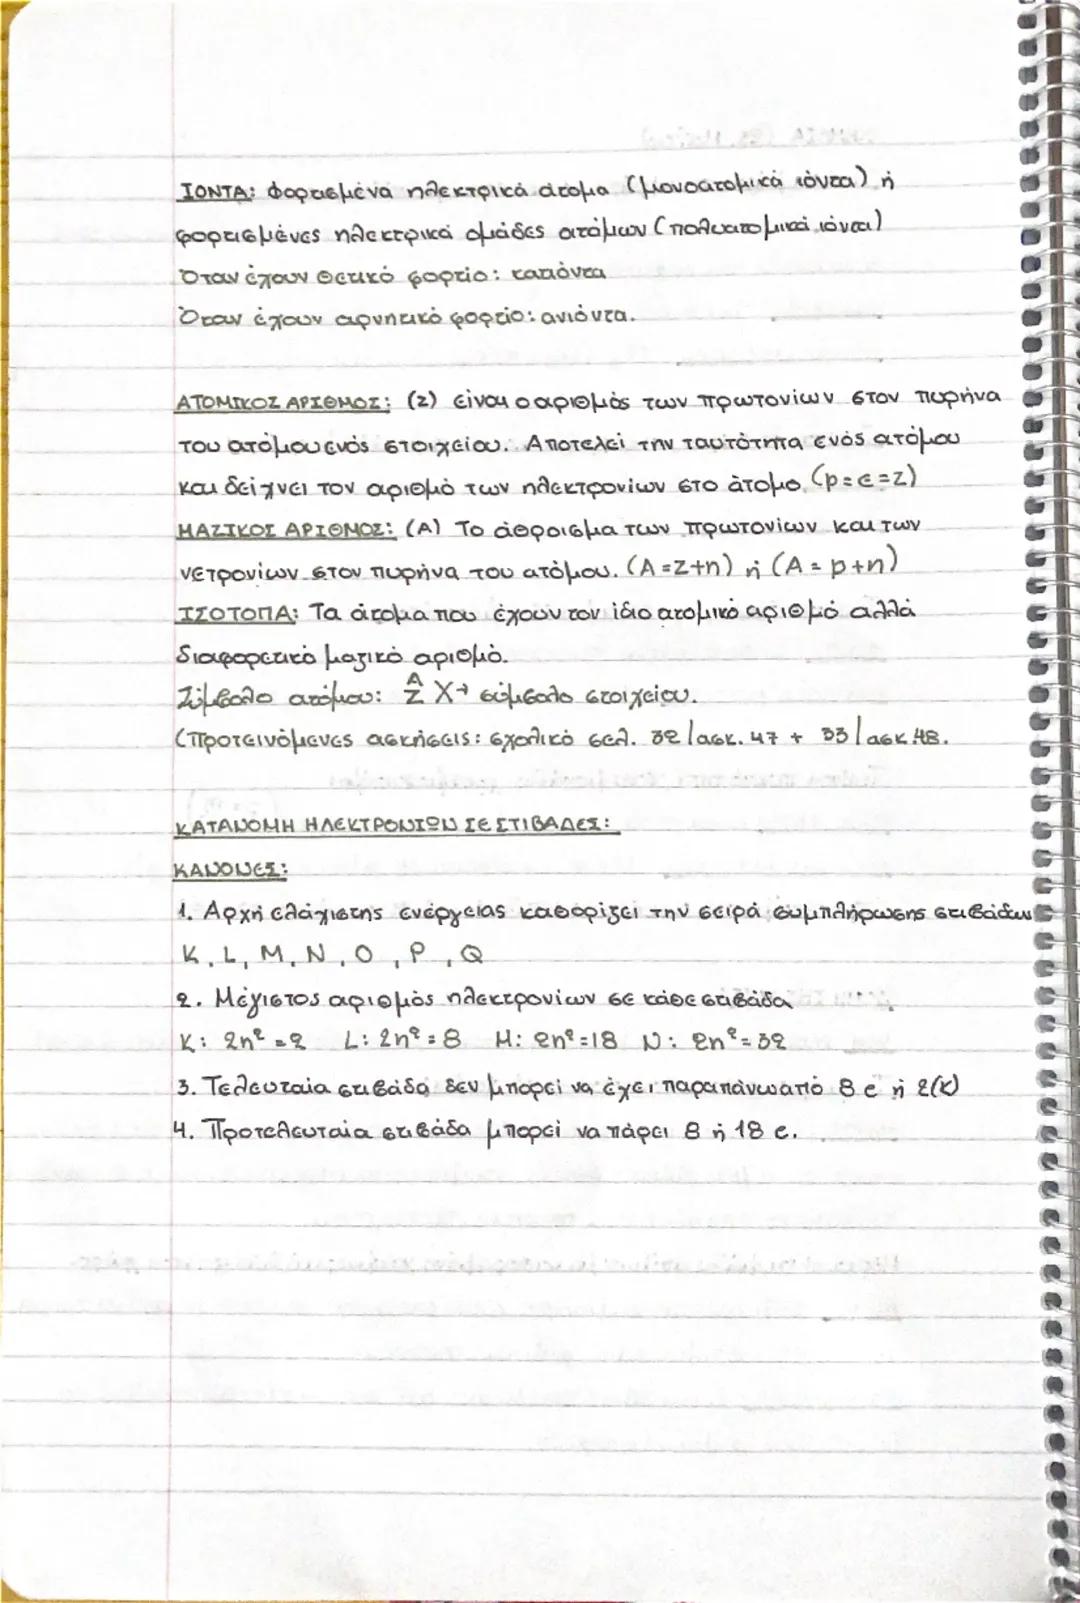 ΙΟΝΤΑ: Φορτισμένα ηλεκτρικά άτομα (μονοατομικά ιόντα) ή
φορτισμένες ηλεκτρικά ομάδες ατόμων (πολυατομικά ιόντα)
Όταν έχουν θετικό φορτίο: κατιόντα
Όταν έχουν αρνητικό φορτίο: ανιόντα.
ΑΤΟΜΙΚΟΣ ΑΡΙΘΜΟΣ: (Z) είναι ο αριθμός των πρωτονίων στον πυρήνα
του ατόμου ενός στοιχείου. Αποτελεί την ταυτότητα ενός ατόμου
και δείχνει τον αριθμό των ηλεκτρονίων στο άτομο. (p=e=z)
ΜΑΖΙΚΟΣ ΑΡΙΘΜΟΣ: (A) Το άθροισμα των πρωτονίων και των
νετρονίων στον πυρήνα του ατόμου. (A=Z+n) ή (A=p+n)
ΙΣΟΤΟΠΑ: Τα άτομα που έχουν τον ίδιο ατομικό αριθμό αλλά
διαφορετικό μαζικό αριθμό.
Σύμβολο ατόμου: A Z X → σύμβολο στοιχείου.
(Προτεινόμενες ασκήσεις: σχολικό σελ. 32/ασκ. 47 + 33/ασκ. 48.
ΚΑΤΑΝΟΜΗ ΗΛΕΚΤΡΟΝΙΩΝ ΣΕ ΣΤΙΒΑΔΕΣ:
ΚΑΝΟΝΕΣ:
1. Αρχή ελάχιστης ενέργειας καθορίζει την σειρά συμπλήρωσης στιβάδων
K, L, M, N, O, P, Q
2. Μέγιστος αριθμός ηλεκτρονίων σε κάθε στιβάδα
K: 2n²=2 L: 2n²=8 M: 2n²=18 N: 2n²=32
3. Τελευταία στιβάδα δεν μπορεί να έχει παραπάνω από 8 e ή 2(K)
4. Προτελευταία στιβάδα μπορεί να πάρει 8 ή 18 e.